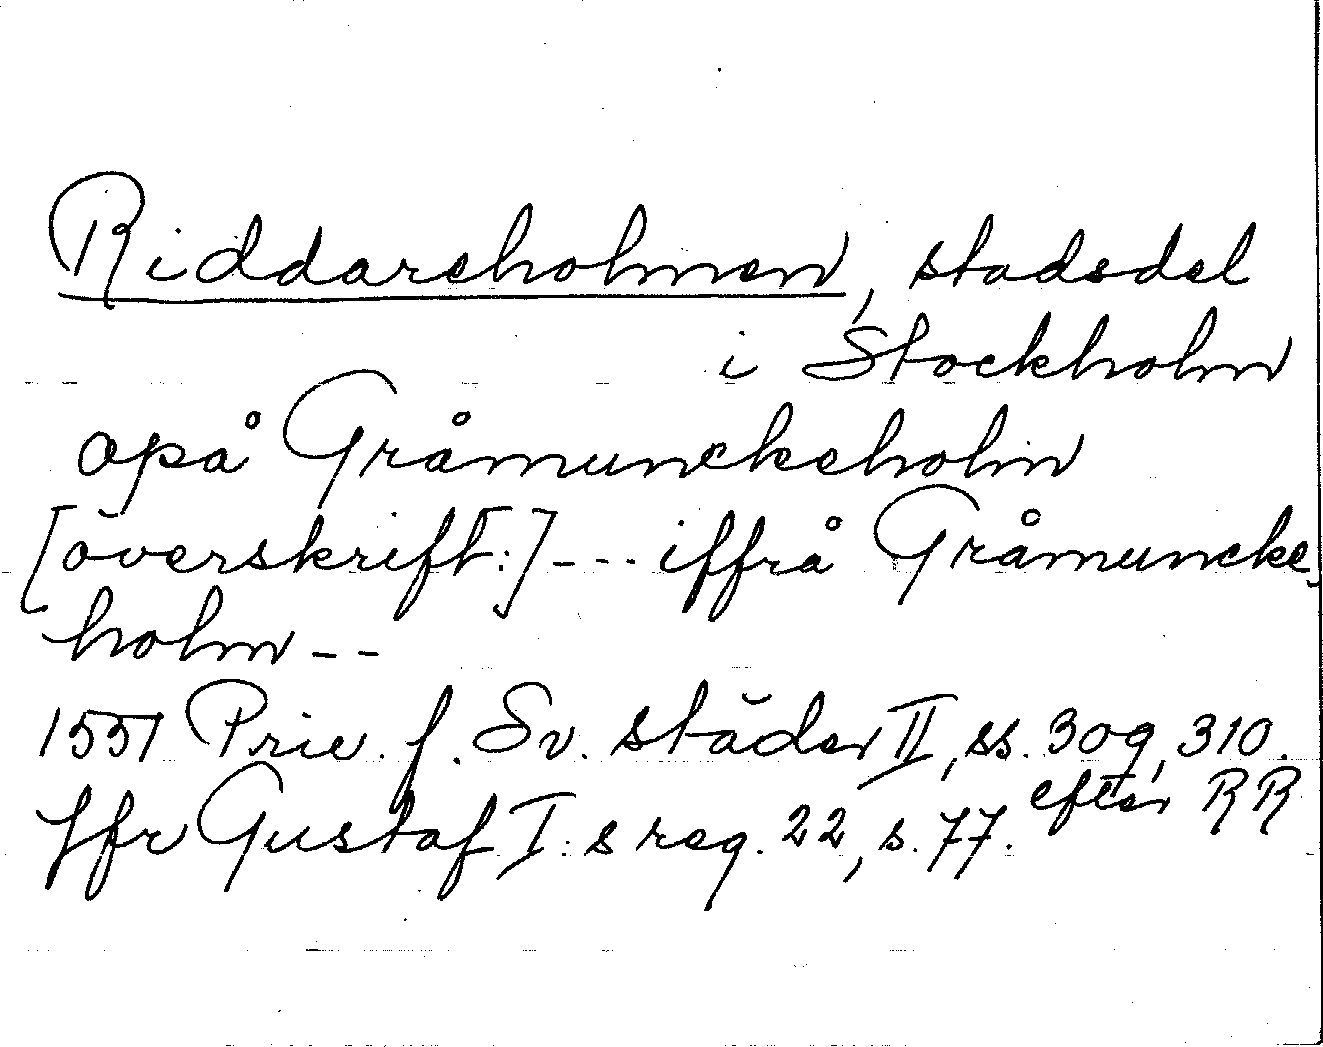 Riddareholmen, stadsdel
i Stockholm
opå Gråmunckeholm
[överskift:] --- iffrå Gråmuncke-
holm --
1551 Priv. f. Sv. städer II, ss. 309, 310.
efter RR
Jfr Gustaf I:s reg. 22, s. 77.